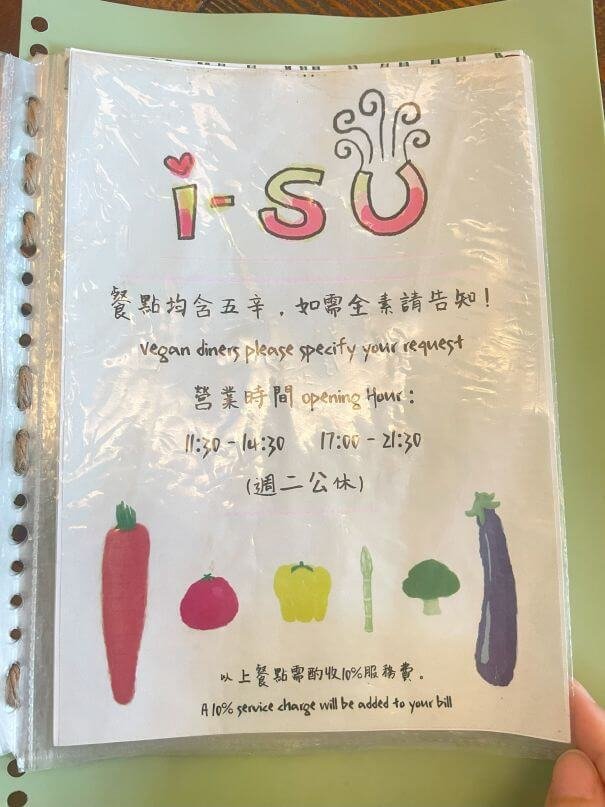 i-SU
餐點均含五辛，如需全素請告知！
Vegan diners please specify your request
營業時間 opening Hour:
11:30-14:30 17:00-21:30
(週二公休)
以上餐點需酌收10%服務費。
A 10% service charge will be added to your bill